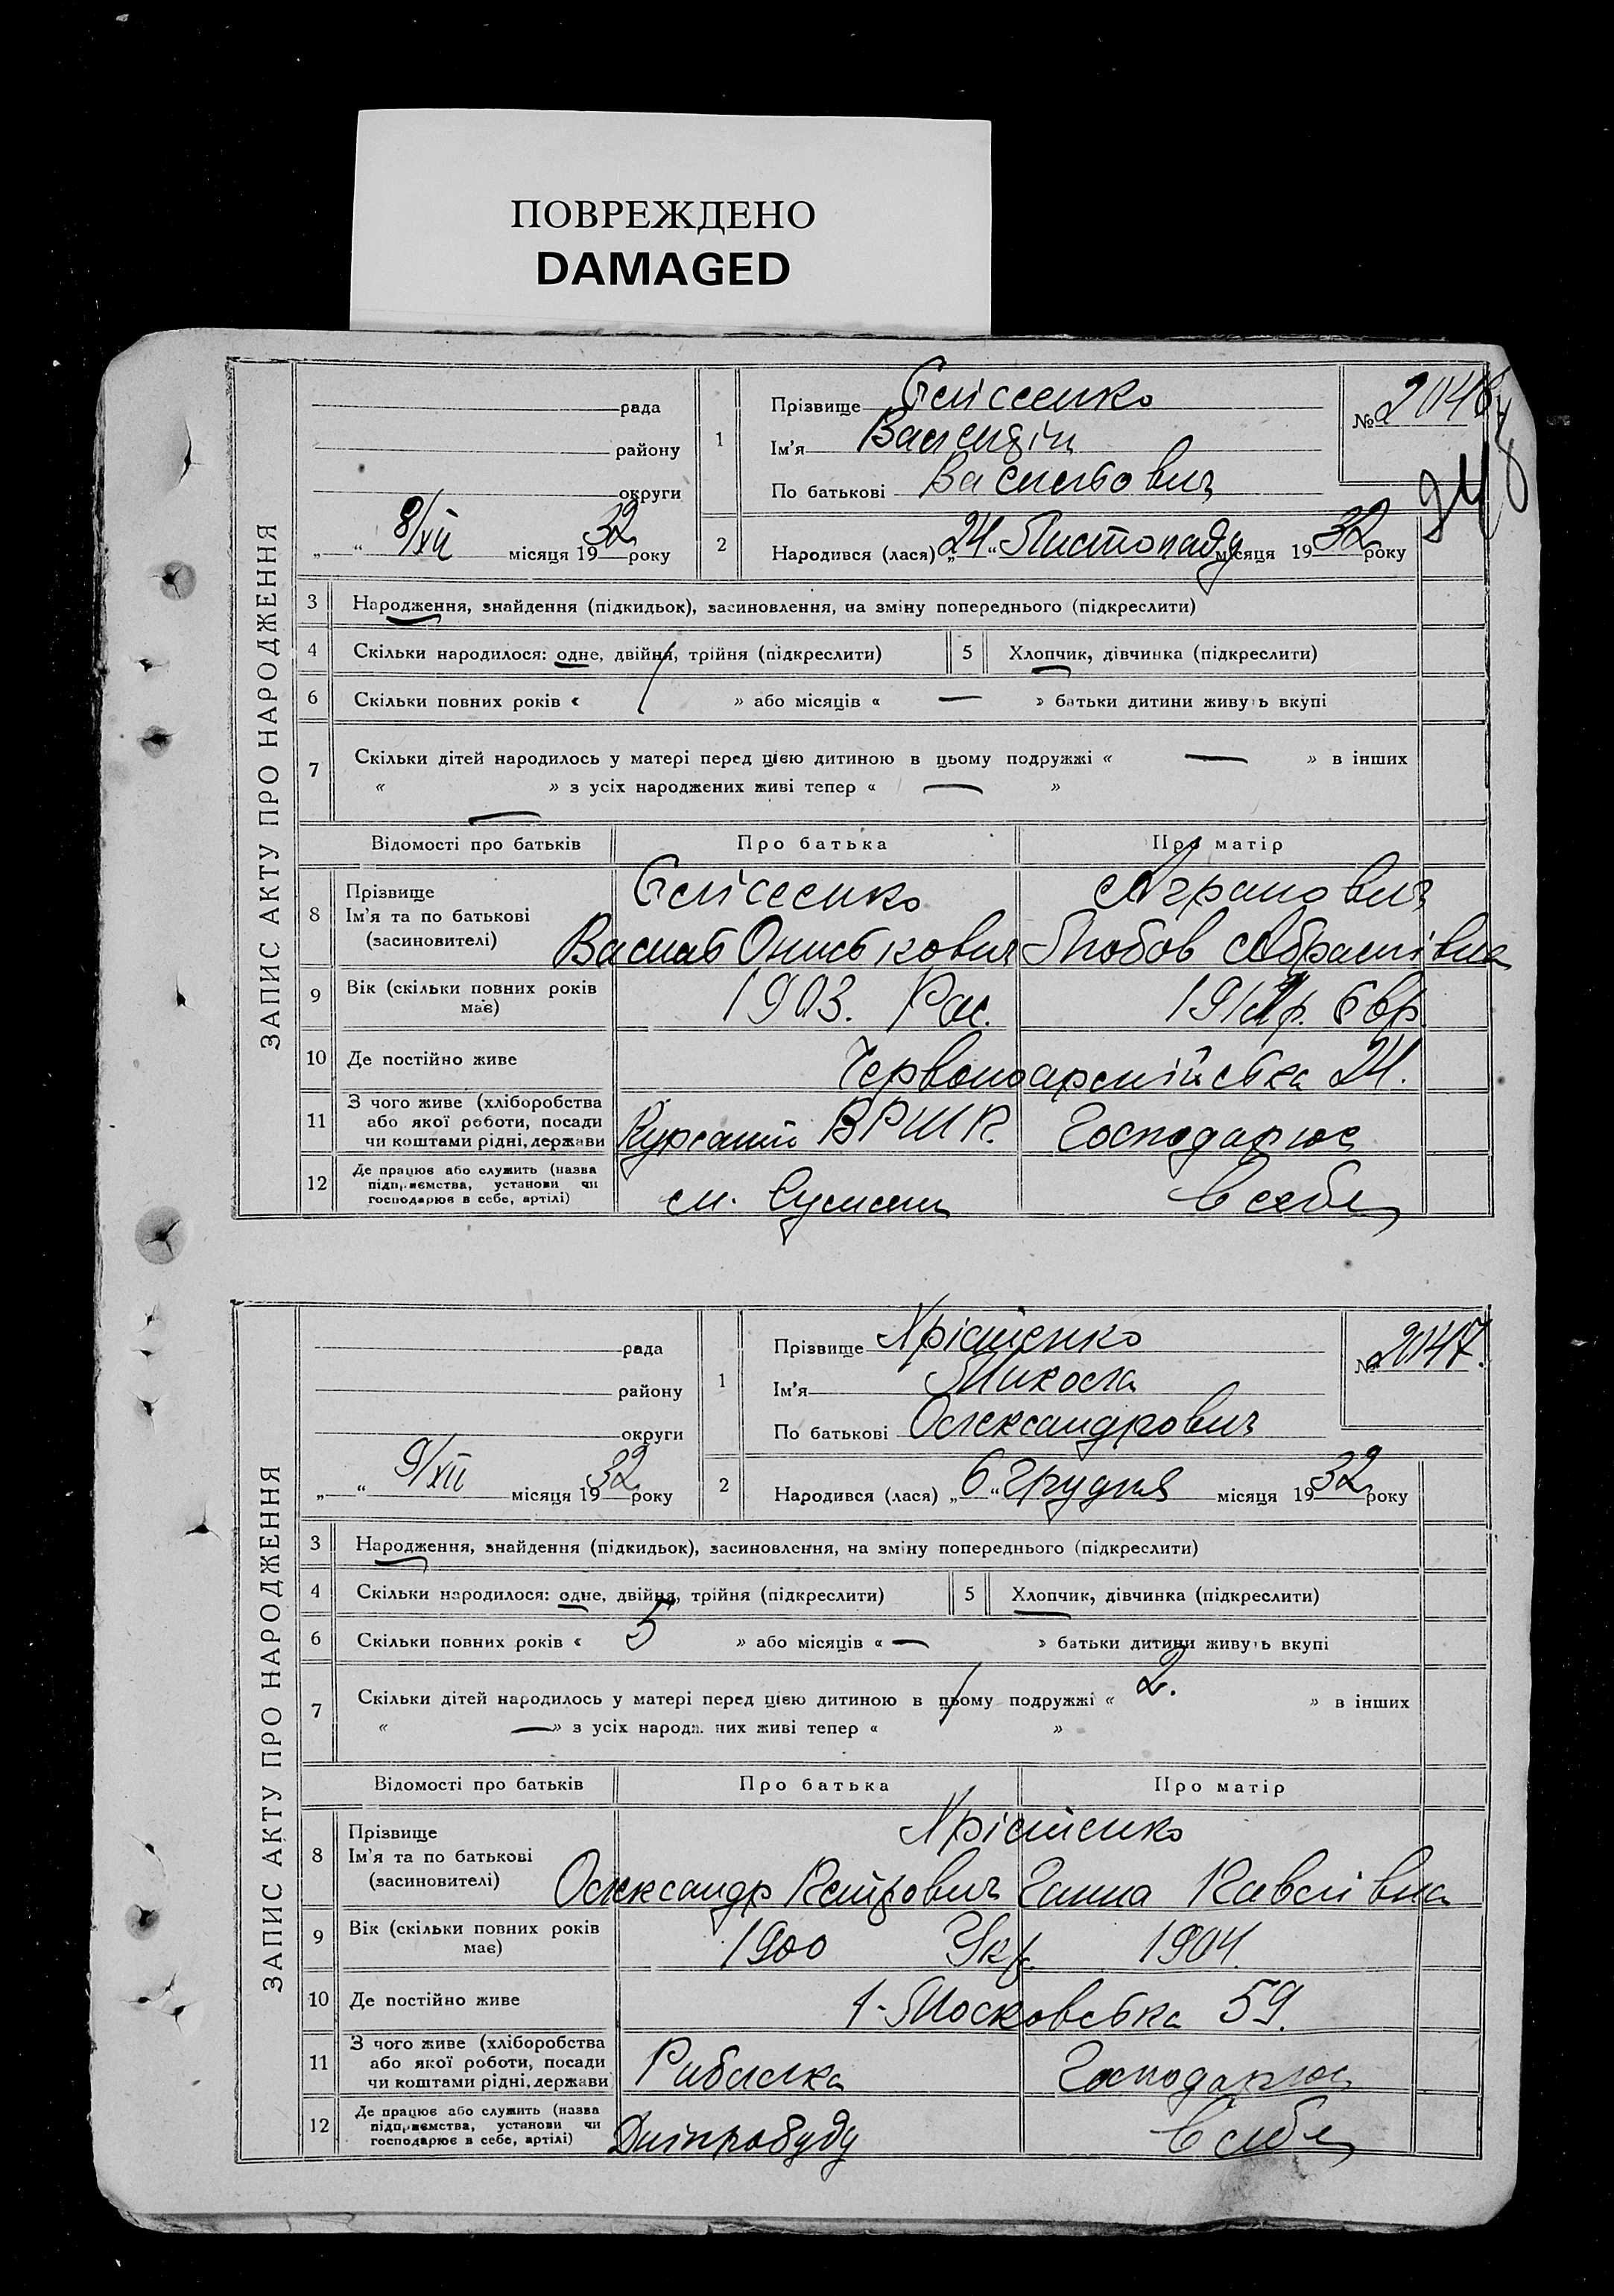 ПОВРЕЖДЕНО
DAMAGED
ЗАПИС АКТУ ПРО НАРОДЖЕННЯ
рада
району
округи
„ “ 8/XII місяця 1932 року
1
Прізвище Єлісеенко
Ім'я Валендін
По батькові Васильович
№ 2046
2
Народився (лася) „24“ Листопаду місяця 1932 року
3 Народження, знайдення (підкидьок), засиновлення, на зміну попереднього (підкреслити)
4 Скільки народилося: одне, двійня, трійня (підкреслити)
5 Хлопчик, дівчинка (підкреслити)
6 Скільки повних років « 1 » або місяців « — » батьки дитини живуть вкупі
7 Скільки дітей народилось у матері перед цією дитиною в цьому подружжі « — » в інших
« — » з усіх народжених живі тепер « — »
Відомості про батьків Про батька Про матір
8 Прізвище
Ім'я та по батькові
(засиновителі)
Єлісеенко Агранович
Василь Ониськович Любов Абрамівна
9 Вік (скільки повних років
має)
1903. Рос. 1912р. Євр.
10 Де постійно живе Червоноармійська 24.
11 З чого живе (хліборобства
або якої роботи, посади
чи коштами рідні, держави
Курсант ВРШК. Господарює
12 Де працює або служить (назва
підприємства, установи чи
господарює в себе, артілі)
м. Сумами в себе
ЗАПИС АКТУ ПРО НАРОДЖЕННЯ
рада
району
округи
„ “ 9/XII місяця 1932 року
1
Прізвище Хрістенко
Ім'я Микола
По батькові Олександрович
№ 2047.
2
Народився (лася) „6“ Грудня місяця 1932 року
3 Народження, знайдення (підкидьок), засиновлення, на зміну попереднього (підкреслити)
4 Скільки народилося: одне, двійня, трійня (підкреслити)
5 Хлопчик, дівчинка (підкреслити)
6 Скільки повних років « 5 » або місяців « — » батьки дитини живуть вкупі
7 Скільки дітей народилось у матері перед цією дитиною в цьому подружжі « 2. » в інших
« — » з усіх народжених живі тепер « »
Відомості про батьків Про батька Про матір
8 Прізвище
Ім'я та по батькові
(засиновителі)
Хрістенко
Олександр Петрович Ганна Павлівна
9 Вік (скільки повних років
має)
1900 Укр. 1904.
10 Де постійно живе 1-Московська 59.
11 З чого живе (хліборобства
або якої роботи, посади
чи коштами рідні, держави
Рибалка Господарює
12 Де працює або служить (назва
підприємства, установи чи
господарює в себе, артілі)
Дніпробуду в себе